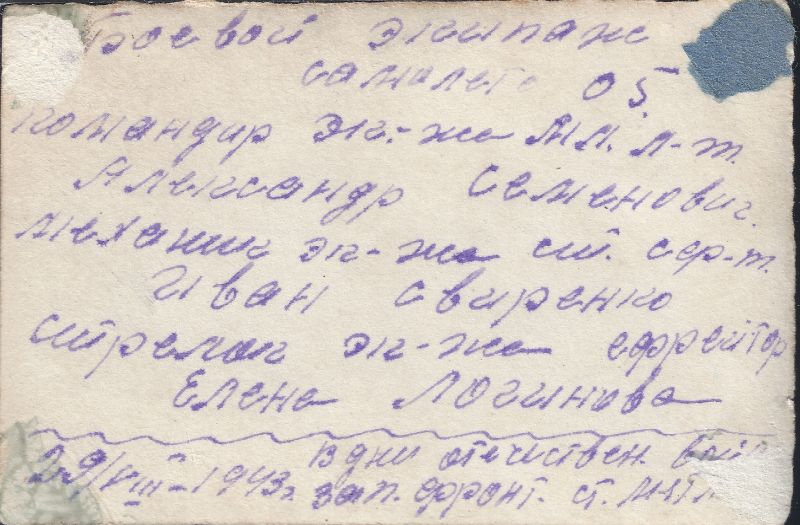 Боевой экипаж
самолета 05.
командир эк.-жа мл. л-т.
Александр Семенович.
механик эк-жа ст. сер-т.
Иван Свиренко
стрелок эк-жа ефрейтор
Елена Логинова
29/VIII-1943г. в дни отечествен.
зап. фронт. ст.